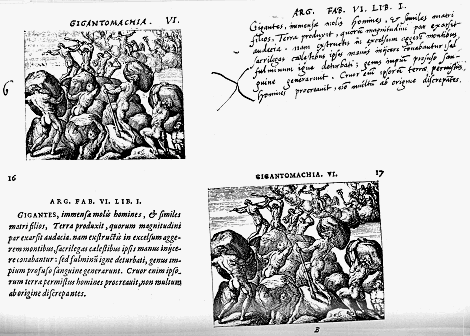 GIGANTOMACHIA. VI.
ARG. FAB. VI LIB. I.
Gigantes, immensa molis homines, & similes matri
filios, Terra produxit, quorum magnitudini par exarsit
audacia. nam extructis in excelsum aggere montibus,
sacrilegas caelestibus ipsis manus inijcere conabantur; sed
fulminum igne deturbati; genus impium profuso san-
guine generarunt. Cruor enim ipsorum terra permistus
homines procreavit, non multum ab origine discrepantes.
6
16
ARG. FAB. VI. LIB. I.
GIGANTES, immensa molis homines, & similes
matri filios, Terra produxit, quorum magnitudini
par exarsit audacia. nam exstructis in excelsum agge-
rem montibus, sacrilegas caelestibus ipsis manus inijce-
re conabantur: sed fulminū igne deturbati, genus im-
pium profuso sanguine generarunt. Cruor enim ipso-
rum terra permistus homines procreavit, non multum
ab origine discrepantes.
GIGANTOMACHIA. VI.
17
B